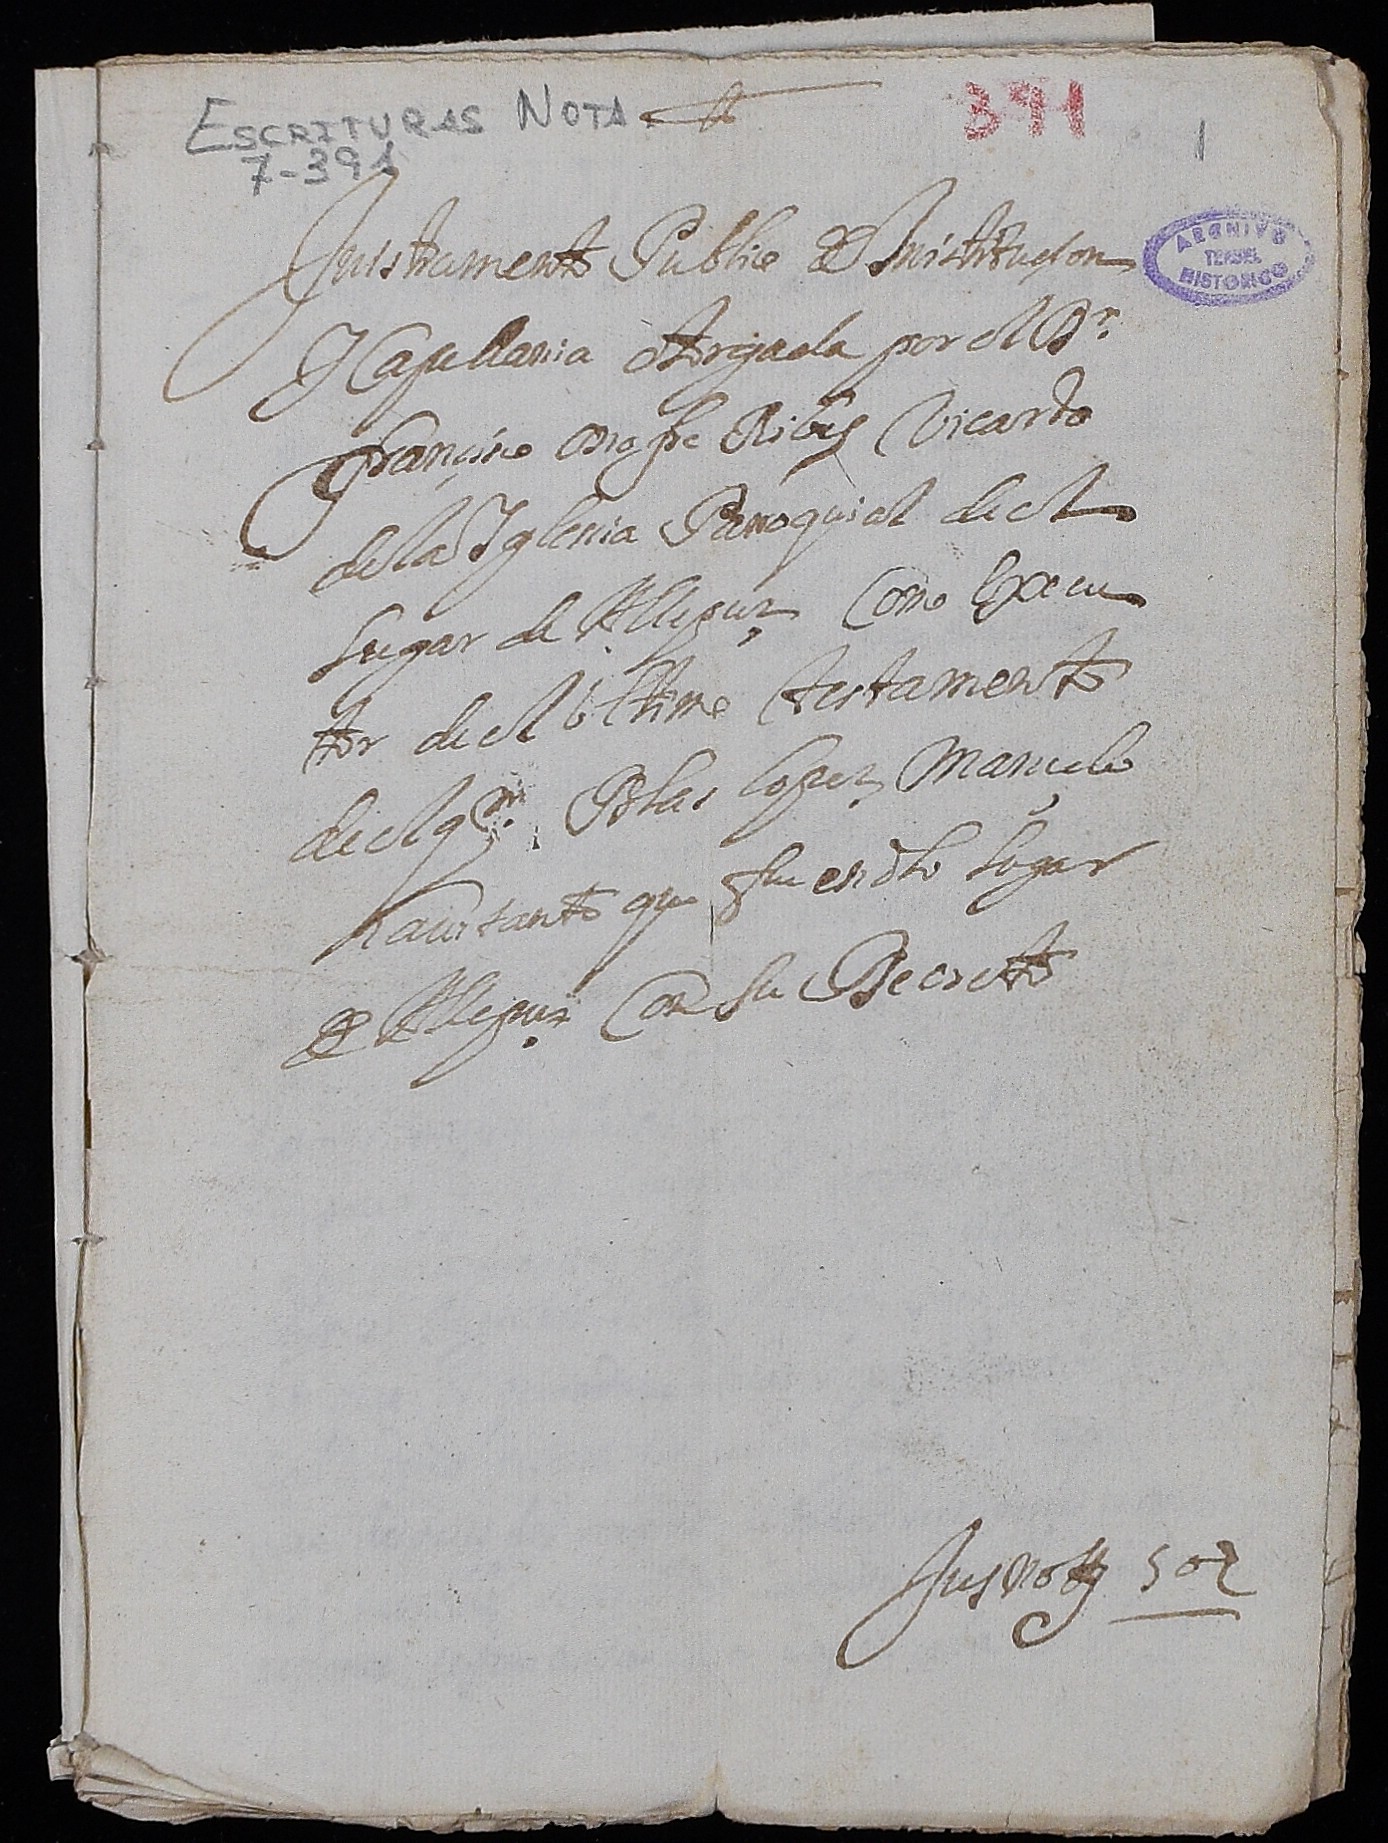 ESCRITURAS NOTA.
7-391
391
1
ARCHIVO
TERUEL
HISTORICO
Instrumento Publico de Institucion
Y Capellania otorgada por el Dr.
Françisco Onofre Ribes Vicario
de la Yglesia Parroquial de el
Lugar de Allepuz Como Execu
tor de el Ultimo testamento
de el qm. Blas Lopez Mançebo
hauitante que fue en dho Lugar
de Allepuz Con su Decretto